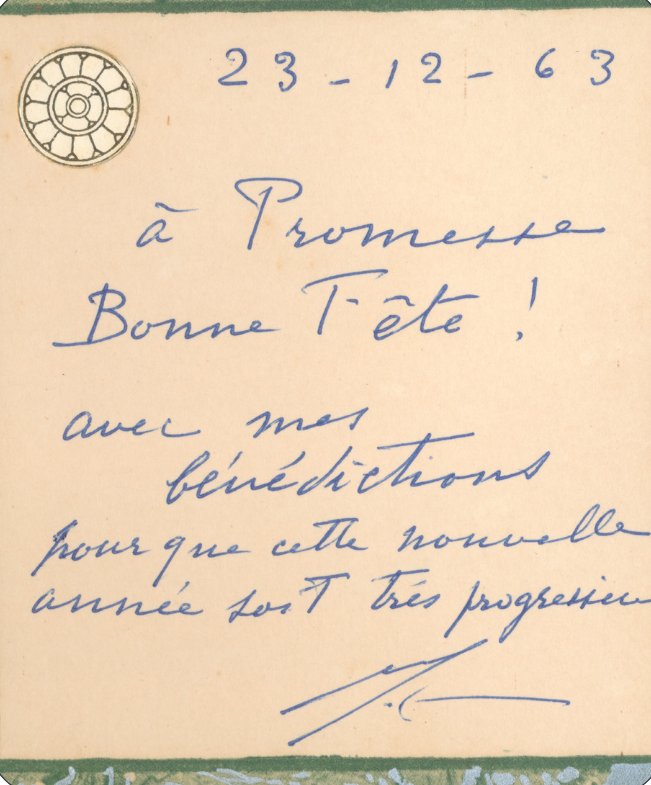 23-12-63
à Promesse
Bonne Fête !
avec mes
bénédictions
pour que cette nouvelle
année soit très